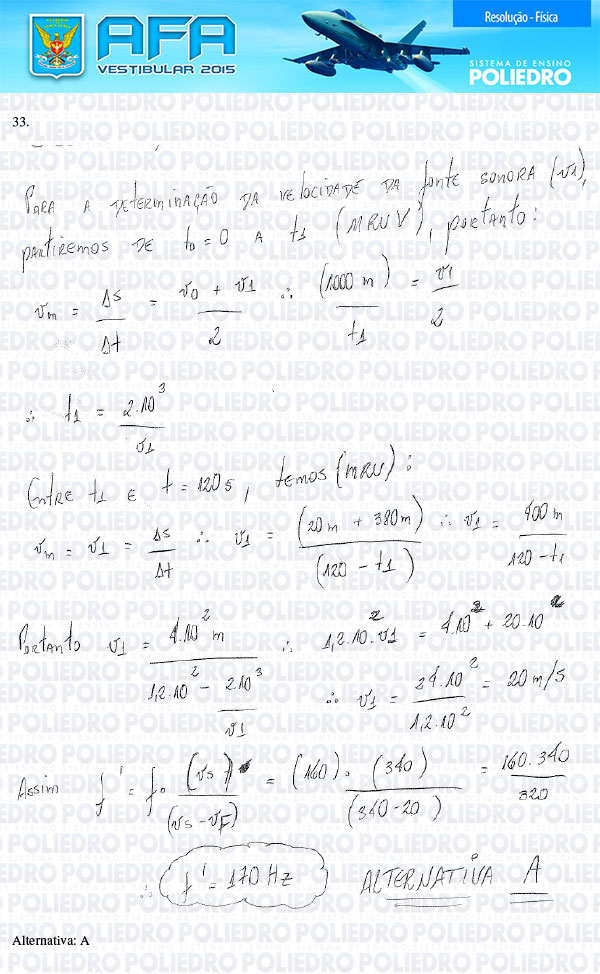 AFA
VESTIBULAR 2015
Resolução - Física
SISTEMA DE ENSINO
POLIEDRO
33.
PARA A DETERMINAÇÃO DA VELOCIDADE DA FONTE SONORA (v1),
PARTIREMOS DE t0 = 0 A t1 (MRUV), PORTANTO:
vm = Δs/Δt = (v0 + v1)/2 ∴ (1000 m)/t1 = v1/2
∴ t1 = 2.10³/v1
ENTRE t1 E t = 120s, TEMOS (MRU):
vm = v1 = Δs/Δt ∴ v1 = (20m + 380m)/(120 - t1) ∴ v1 = 400m/120 - t1
PORTANTO v1 = 4.10² m/(1,2.10² - 2.10³/v1) ∴ 1,2.10².v1 = 4.10² + 20.10²
∴ v1 = 24.10²/1,2.10² = 20 m/s
ASSIM f' = f0 (vs)/(vs - vF) = (160).(340)/(340-20) = 160.340/320
∴ f' = 170 Hz ALTERNATIVA A
Alternativa: A